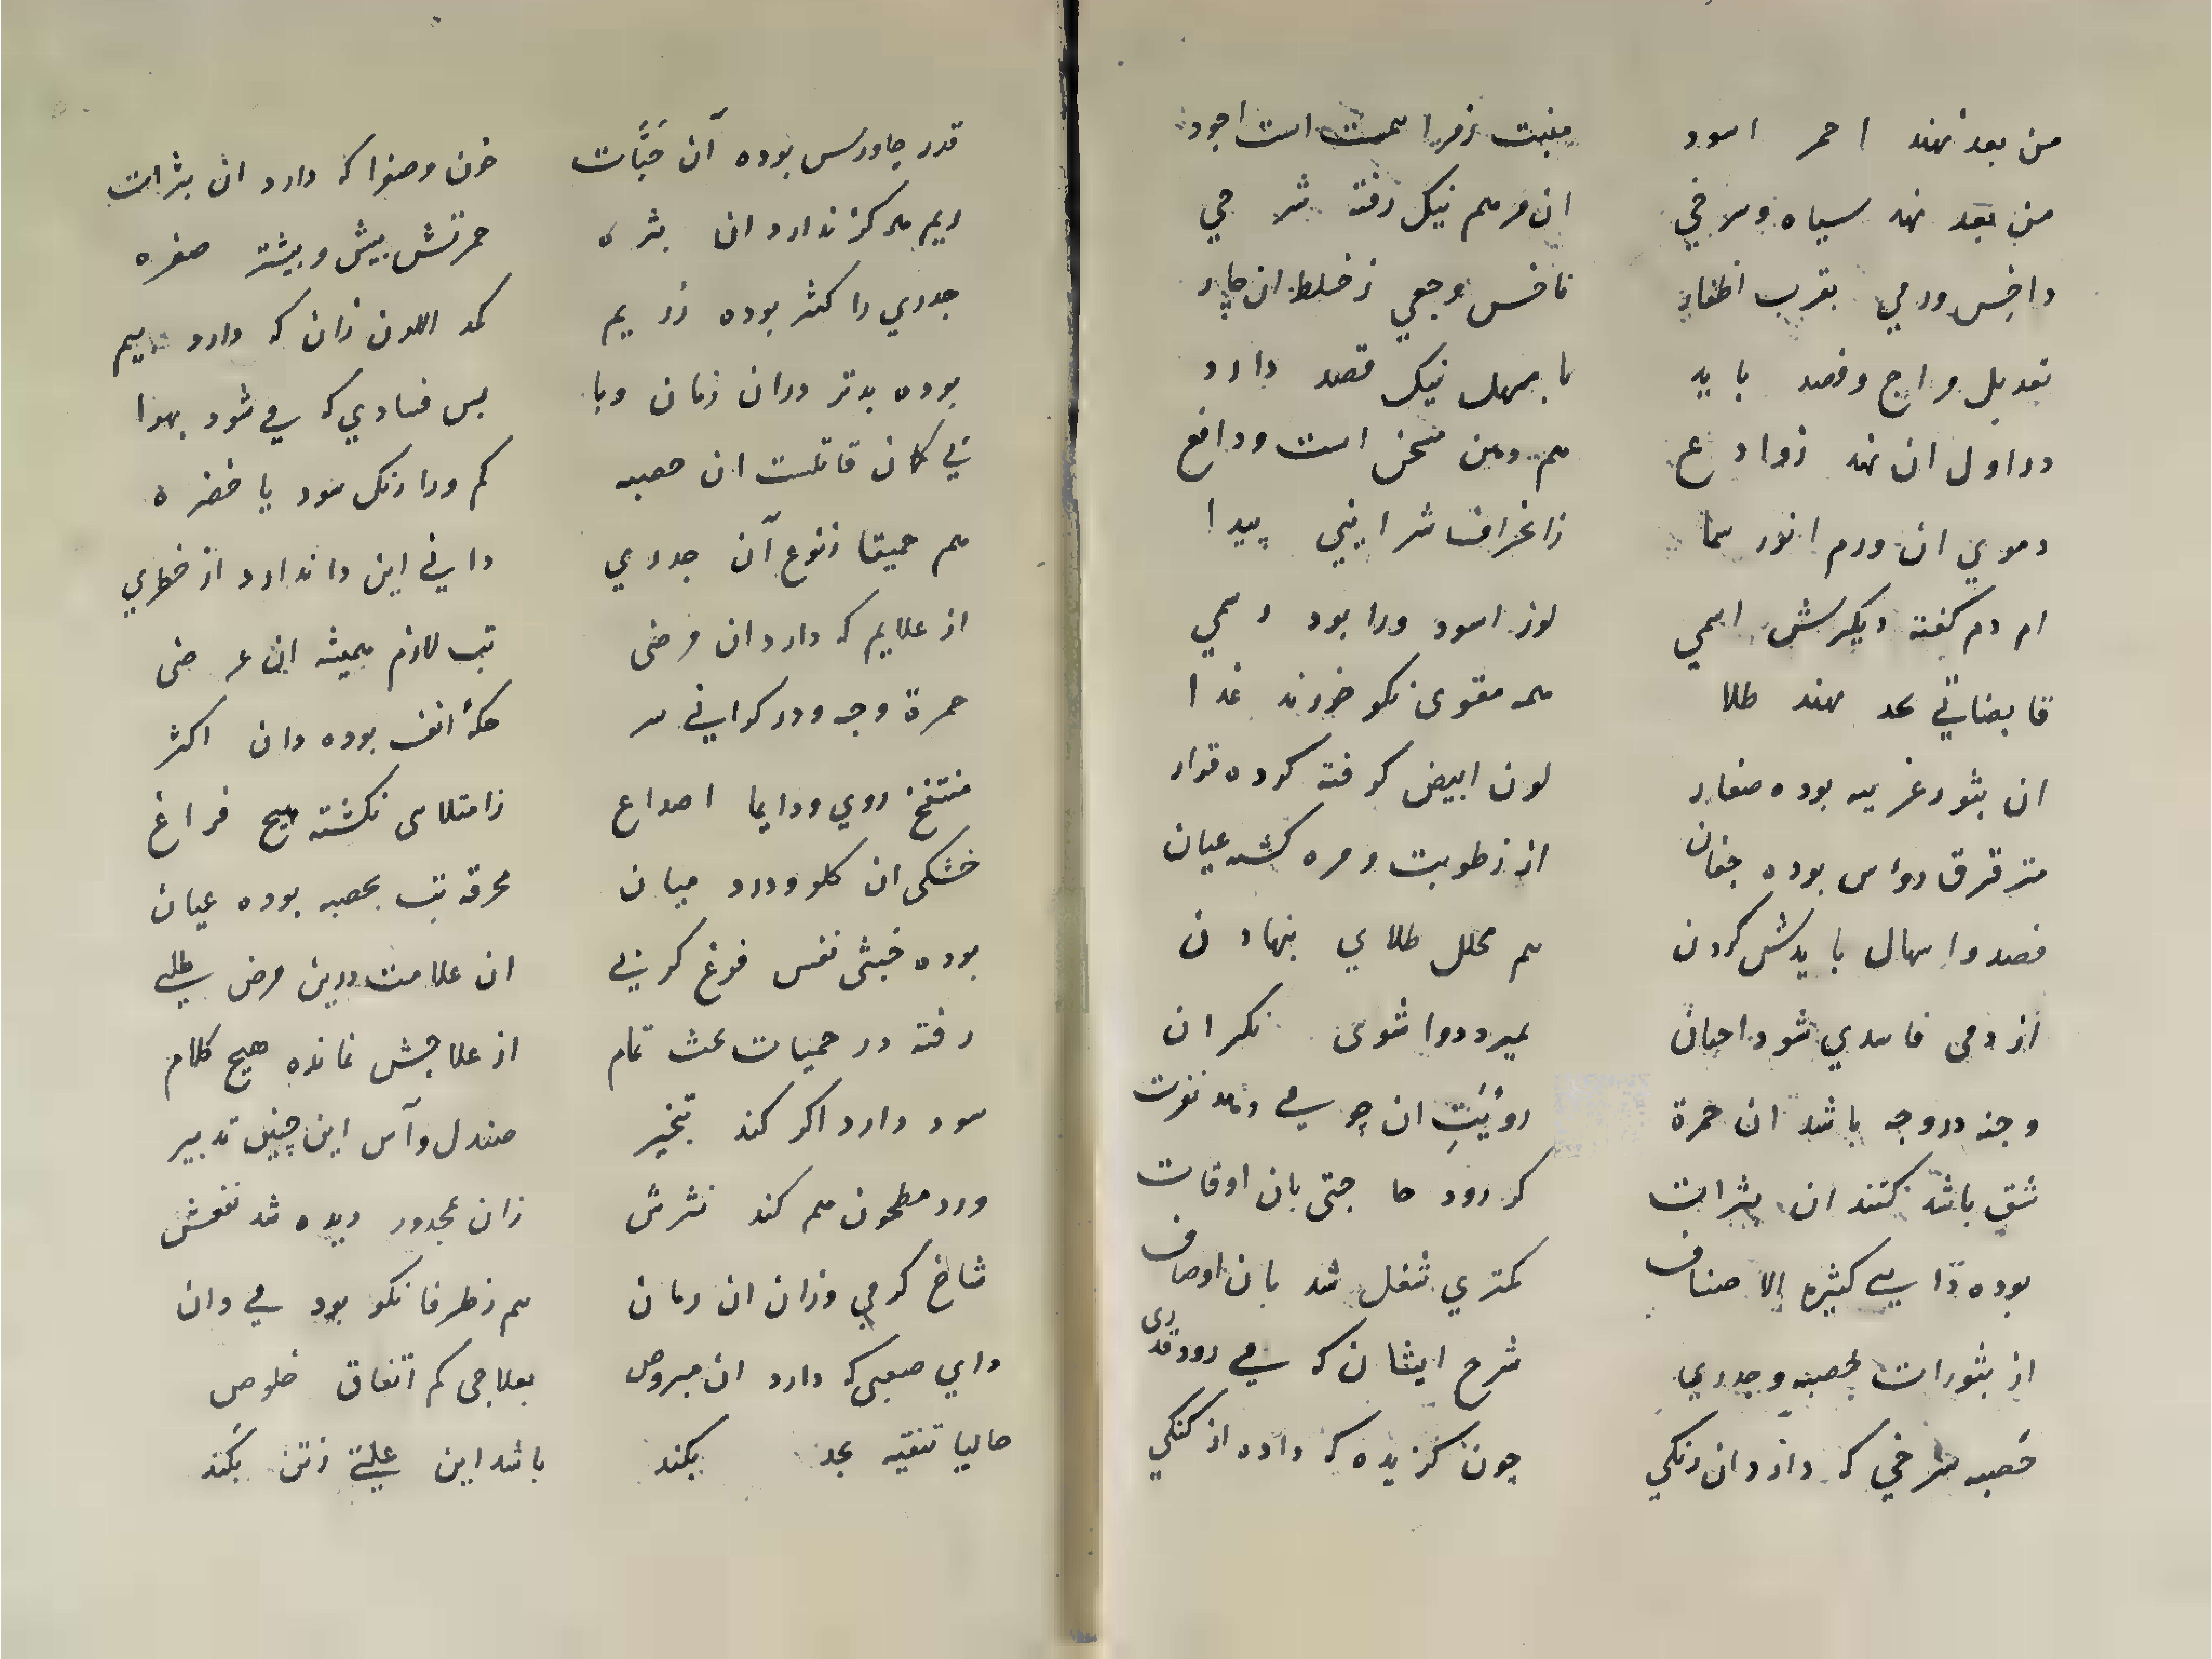 من بعد نهند احمر اسود منبت زفرا سمت است اجود
من بعد نهد سیاه و سرخي ان مرهم نیک رفته شرحي
داخس ورمي بقرب اظفار ناخس وجعي ز خلط ان حار
تعدیل مزاج و فصد باید با مسهل نیک قصد دارد
در اول ان نهد زوادع هم دهن مسخن است و دافع
دموي ان ورم انور سما ز انخراف شراییني پیدا
ام دم گفته دیکرش اسمي لون اسود ورا بود رسمي
قابضاتي بحد نهند طلا همه مقوی نکو خورند غذا
ان بثور غریبه بوده صغار لون ابیض گرفته کرده قرار
مترقرق رؤس بوده جفان از رطوبت و مره گشته عیان
فصد و اسهال بایدش کردن هم محلل طلاي بنهادن
از دمی فاسدي شود احیان بمیرد دوا شوی نکران
وجنه در وجه باشد ان حمرة رؤیَتِ ان چو می دهد نفرت
شق باشد کنند ان بثرات کر رود حاجتی بان اوقات
بوده ذایي کثیره إلا صناف کمتري شغل شد بان اوصاف
از بثورات بحصبه و جدري شرح ایشان که می رود قدری
حَصبه سرخي که دارد ان رنکي چون کزیده که داده از کنکي
قدر جاورس بوده آن حَبَّات خون و صفرا که دارد ان بثرات
ریم هرکز ندارد ان بثره حمرتش بیش و بیشتر صفره
جدري را کثر بوده زریم کمد اللون زان که دارد ریم
بوده بدتر دران زمان وبا بس فسادي که می شود بهوا
ني کان قاتلست ان حصبه کم ورا رنک سود یا خضره
هم حمیقا ز نوع آن جدري دايي این را ندارد از خطري
از علایم که دارد ان مرضی تب لازم همیشه ان عرضی
حمرة وجه و در کراني سر حکهٔ انف بوده دان اکثر
منتفخ روي و دایما اصداع ز امتلاسی نکشته هیچ فراغ
خشکی ان کلو و درد میان محرقه تب بحصبه بوده عیان
بوده خبثی نفس فوغ کربي ان علامت درین مرض طلبي
رفته در حمیات بحث تمام از علاجش نمانده هیچ کلام
سود دارد اکر کند تبخیر صندل و آس این چنین تدبیر
ورد مطحون هم کند نثرش زان مجدور دیده شد نفعش
شاخ کرمي وزان ان رمان هم ز طرفا نکو بود می دان
داي صعبی که دارد ان مبروص بعلاجی کم اتفاق خلوص
حالیا تنقیه بحد بکند باشد این علتي ز تن بکَند